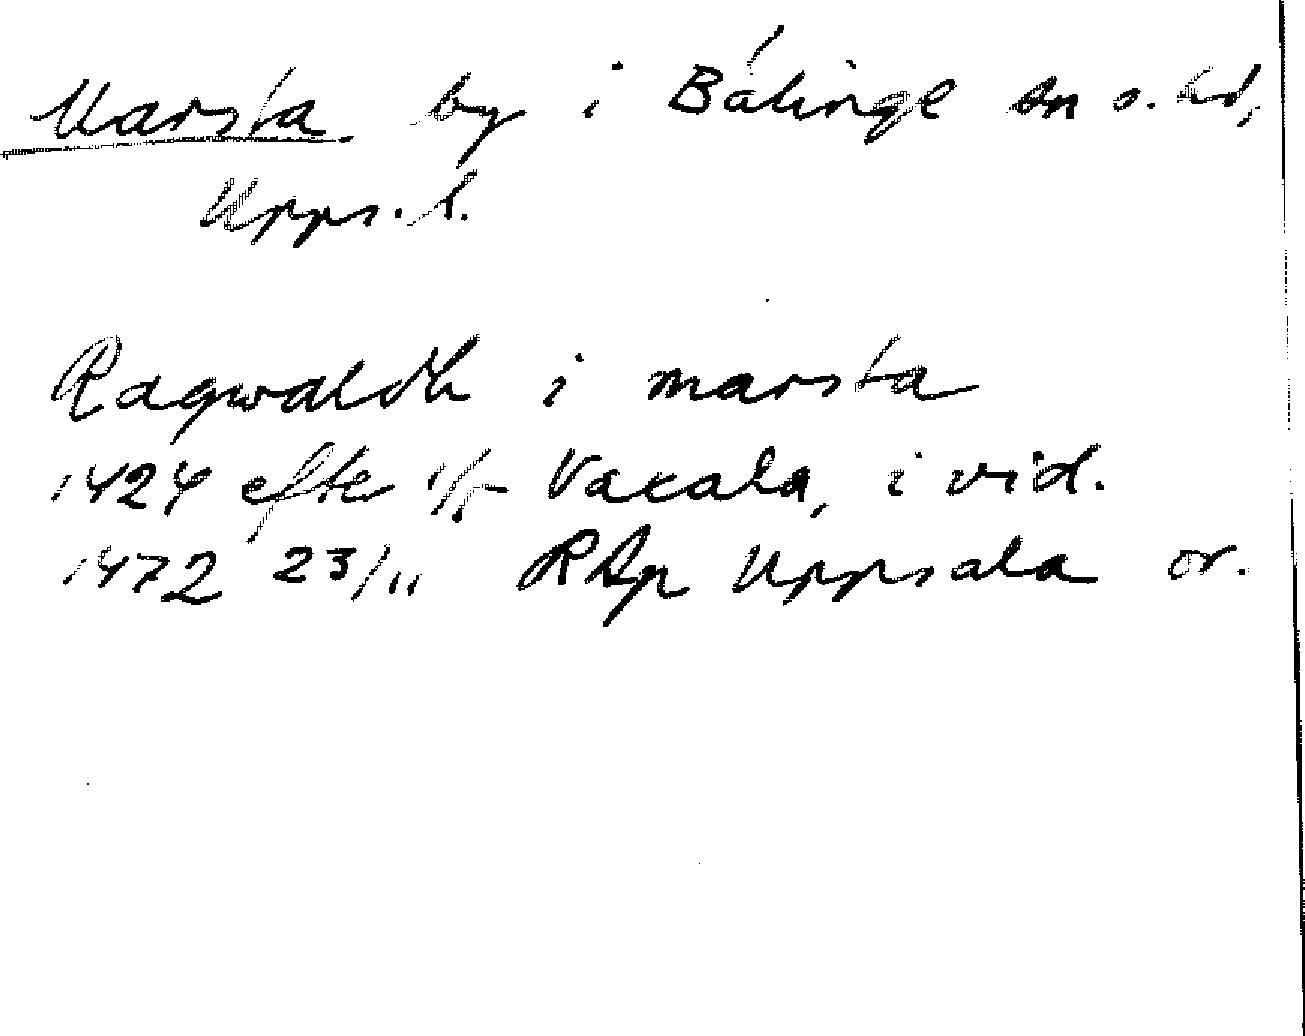 Marsta by i Bälinge sn o. hd,
Upps. l.
Ragwaldh i marsta
1424 efter 1/5 Vaxala, i vid.
1472 23/11 RAp Uppsala or.